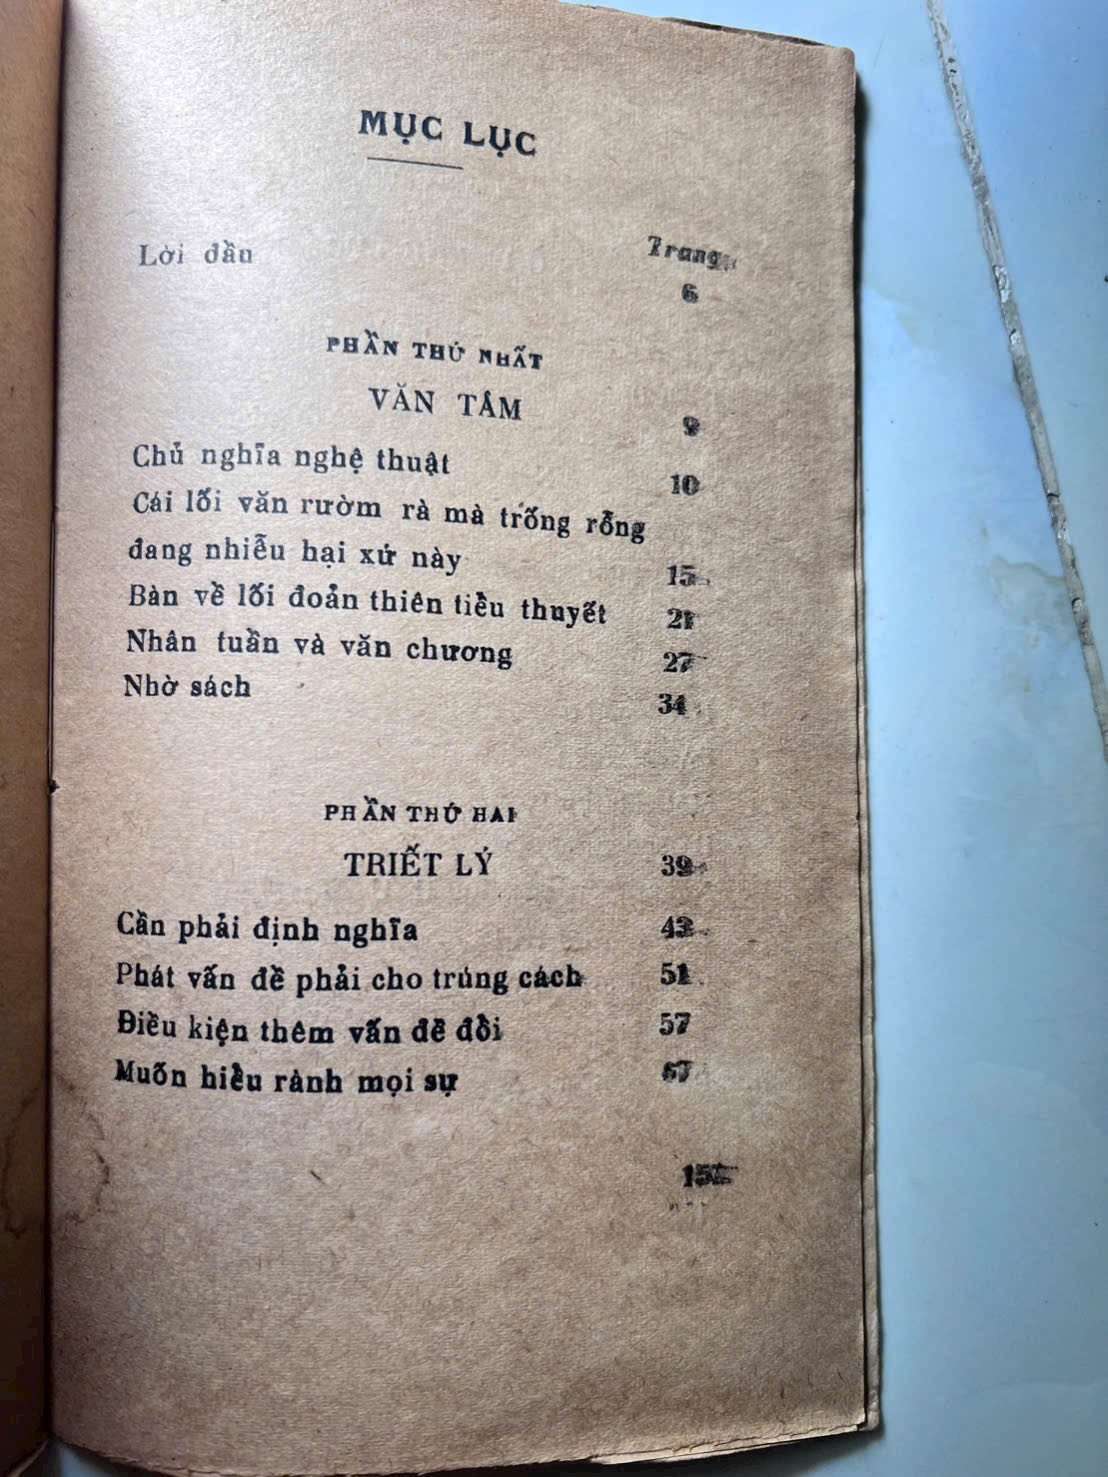 MỤC LỤC
Trang
Lời đầu 6
PHẦN THỨ NHẤT
VĂN TÂM 9
Chủ nghĩa nghệ thuật 10
Cái lối văn rườm rà mà trống rỗng
đang nhiễu hại xứ này 15
Bàn về lối đoản thiên tiểu thuyết 21
Nhân tuần và văn chương 27
Nhờ sách 34
PHẦN THỨ HAI
TRIẾT LÝ 39
Cần phải định nghĩa 43
Phát vấn đề phải cho trúng cách 51
Điều kiện thêm vấn đề đổi 57
Muốn hiểu rành mọi sự 67